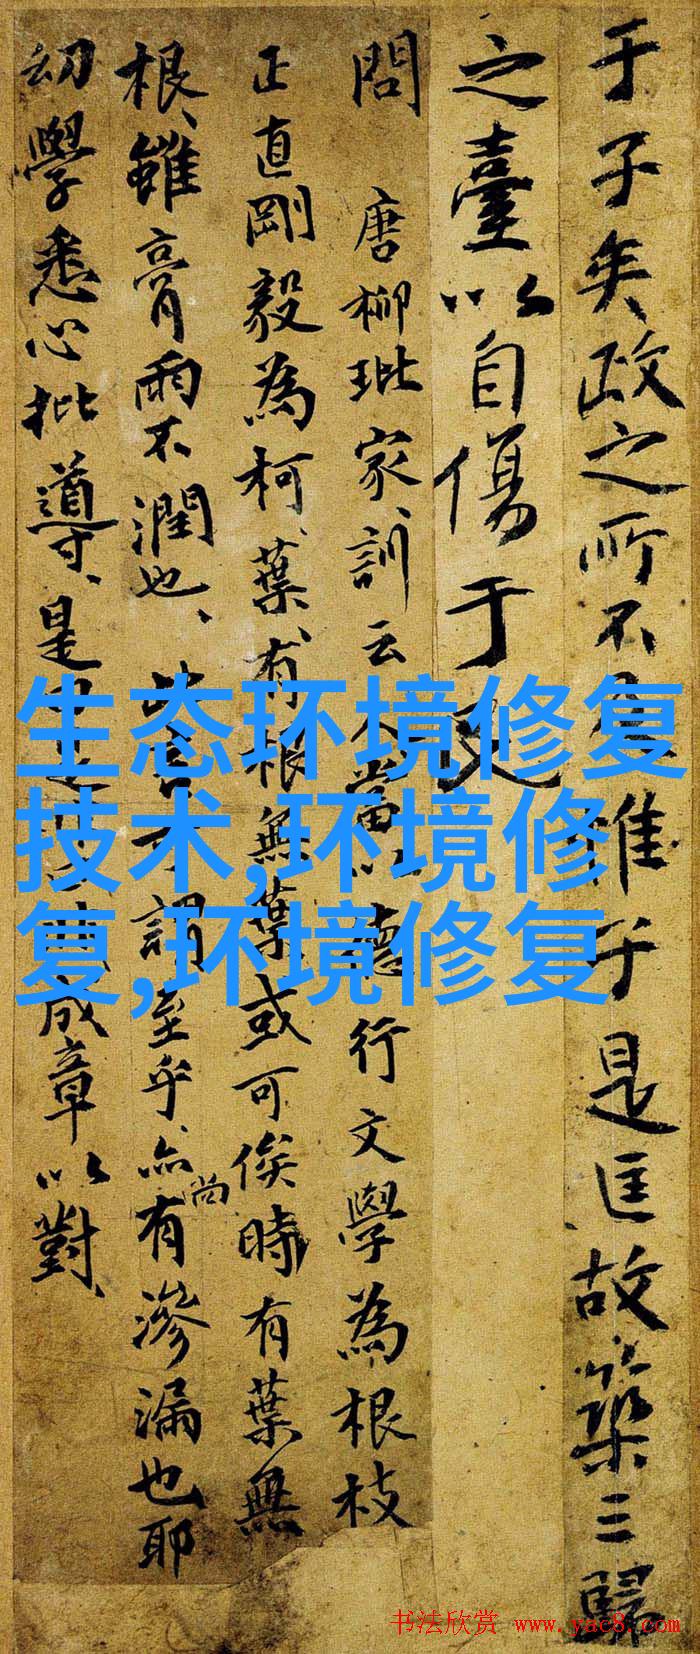 于子矣政之所不及惟于是匡故築三歸
之臺以自傷于
問 唐柳玭家訓云 以德行文學為根枝
正直剛毅為柯葉有根無葉或可俟時有葉無
根雖膏雨不潤也 可謂至乎亦尚有滲漏也耶
幼學悉心批導是 成章以對
生态环境修复
技术,环境修
复,环境修复
书法欣赏 www.yac8.com